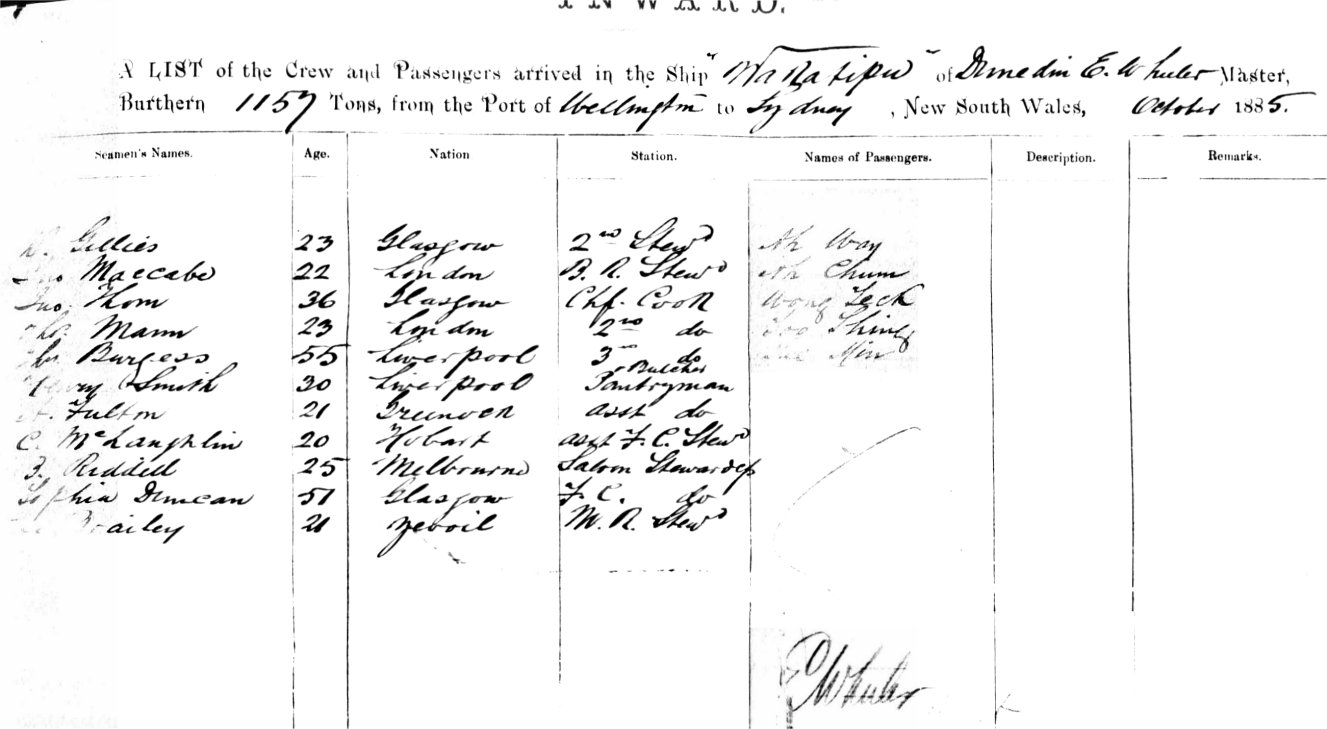 INWARD.
A LIST of the Crew and Passengers arrived in the Ship "Wakatipu" of Dunedin E. Wheeler Master,
Burthern 1157 Tons, from the Port of Wellington to Sydney, New South Wales, October 1885.
Seamen's Names. Age. Nation Station. Names of Passengers. Description. Remarks.
Gillies 23 Glasgow 2nd Stewd Ah Way
Jno Maccabe 22 London B. R. Stewd Ah Chum
Jno. Thom 36 Glasgow Chf. Cook Wong Leck
Thos. Mann 23 London 2nd do Shing
Burgess 55 Liverpool 3rd do Min
Henry Smith 30 Liverpool Butcher Pantryman
Fulton 21 Greenock asst do
C. McLaughlin 20 Hobart asst F. C. Stewd
Riddell 25 Melbourne Saloon Stewardess
Sophia Duncan 51 Glasgow F. C. do
Brailey 21 Yeovil M. R. Stewd
E Wheeler